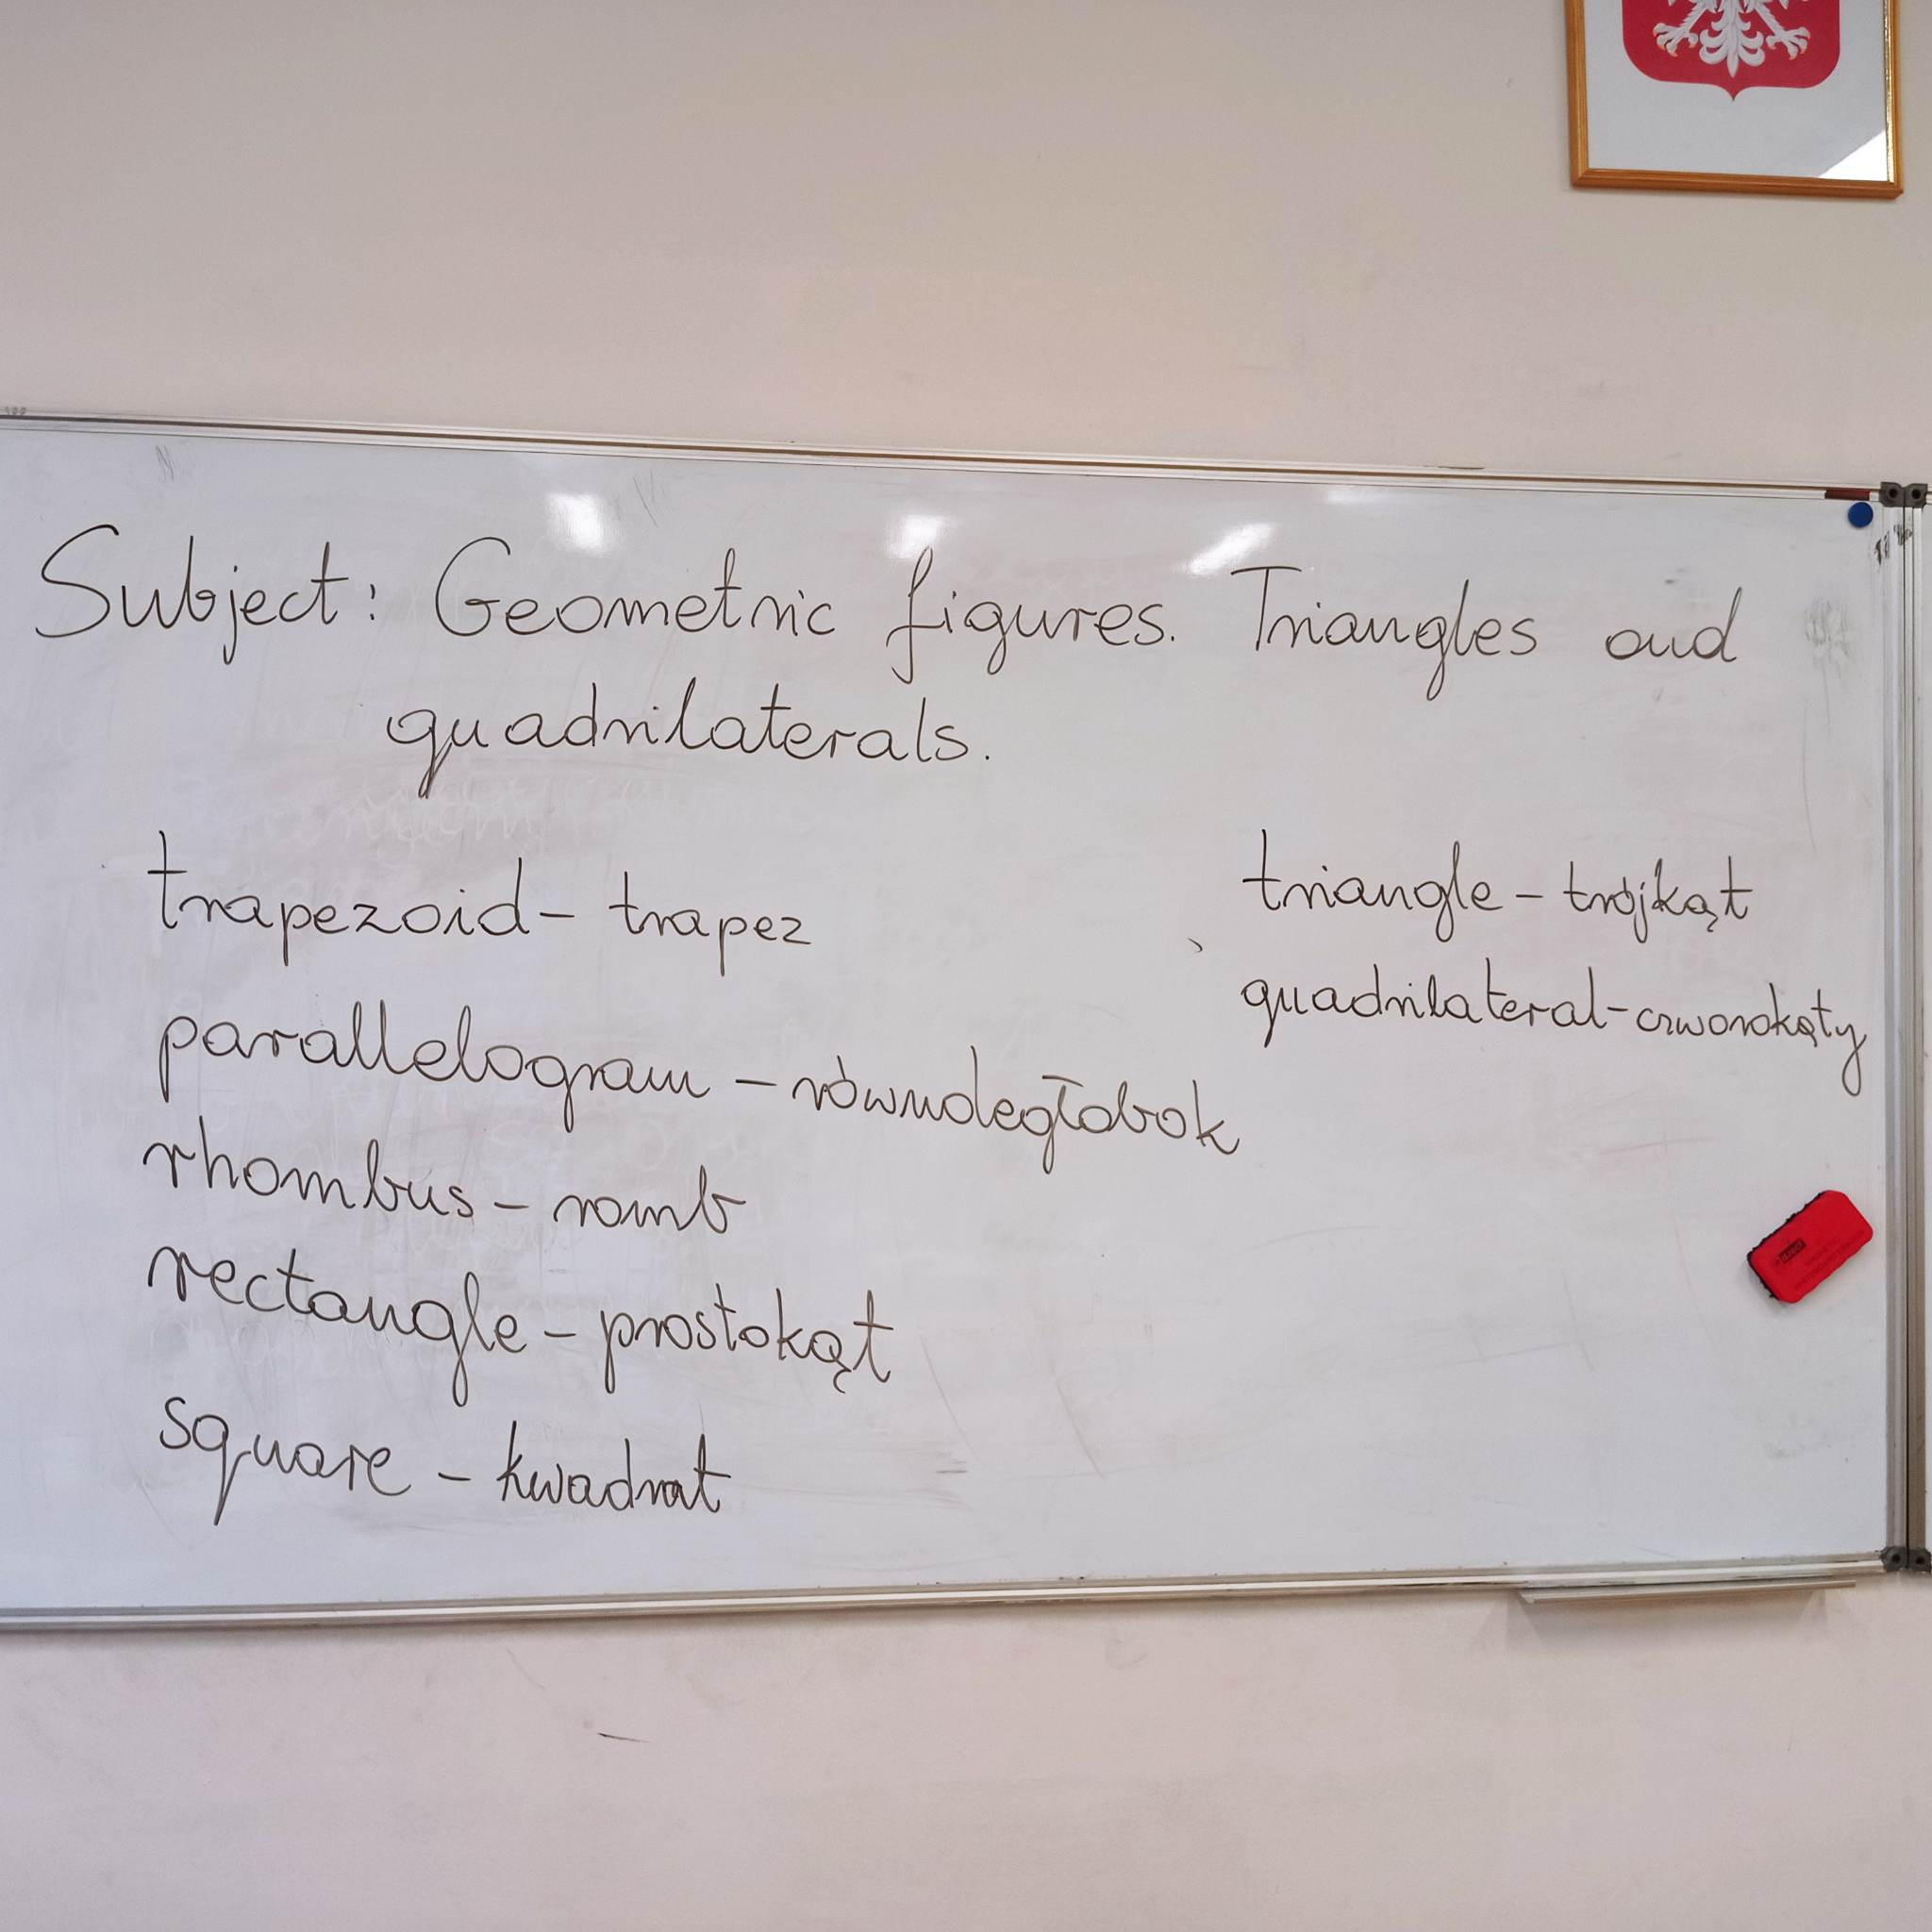 Subject: Geometric figures. Triangles and
quadrilaterals.
trapezoid - trapez
parallelogram - równoległobok
rhombus - romb
rectangle - prostokąt
square - kwadrat
triangle - trójkąt
quadrilateral - czworokąty